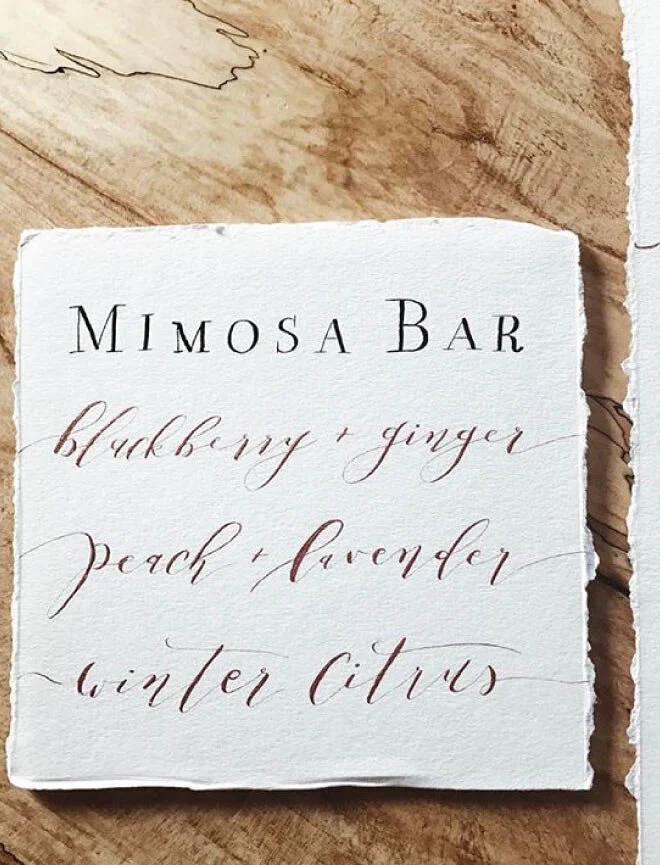 Mimosa Bar
blackberry + ginger
peach + lavender
winter citrus